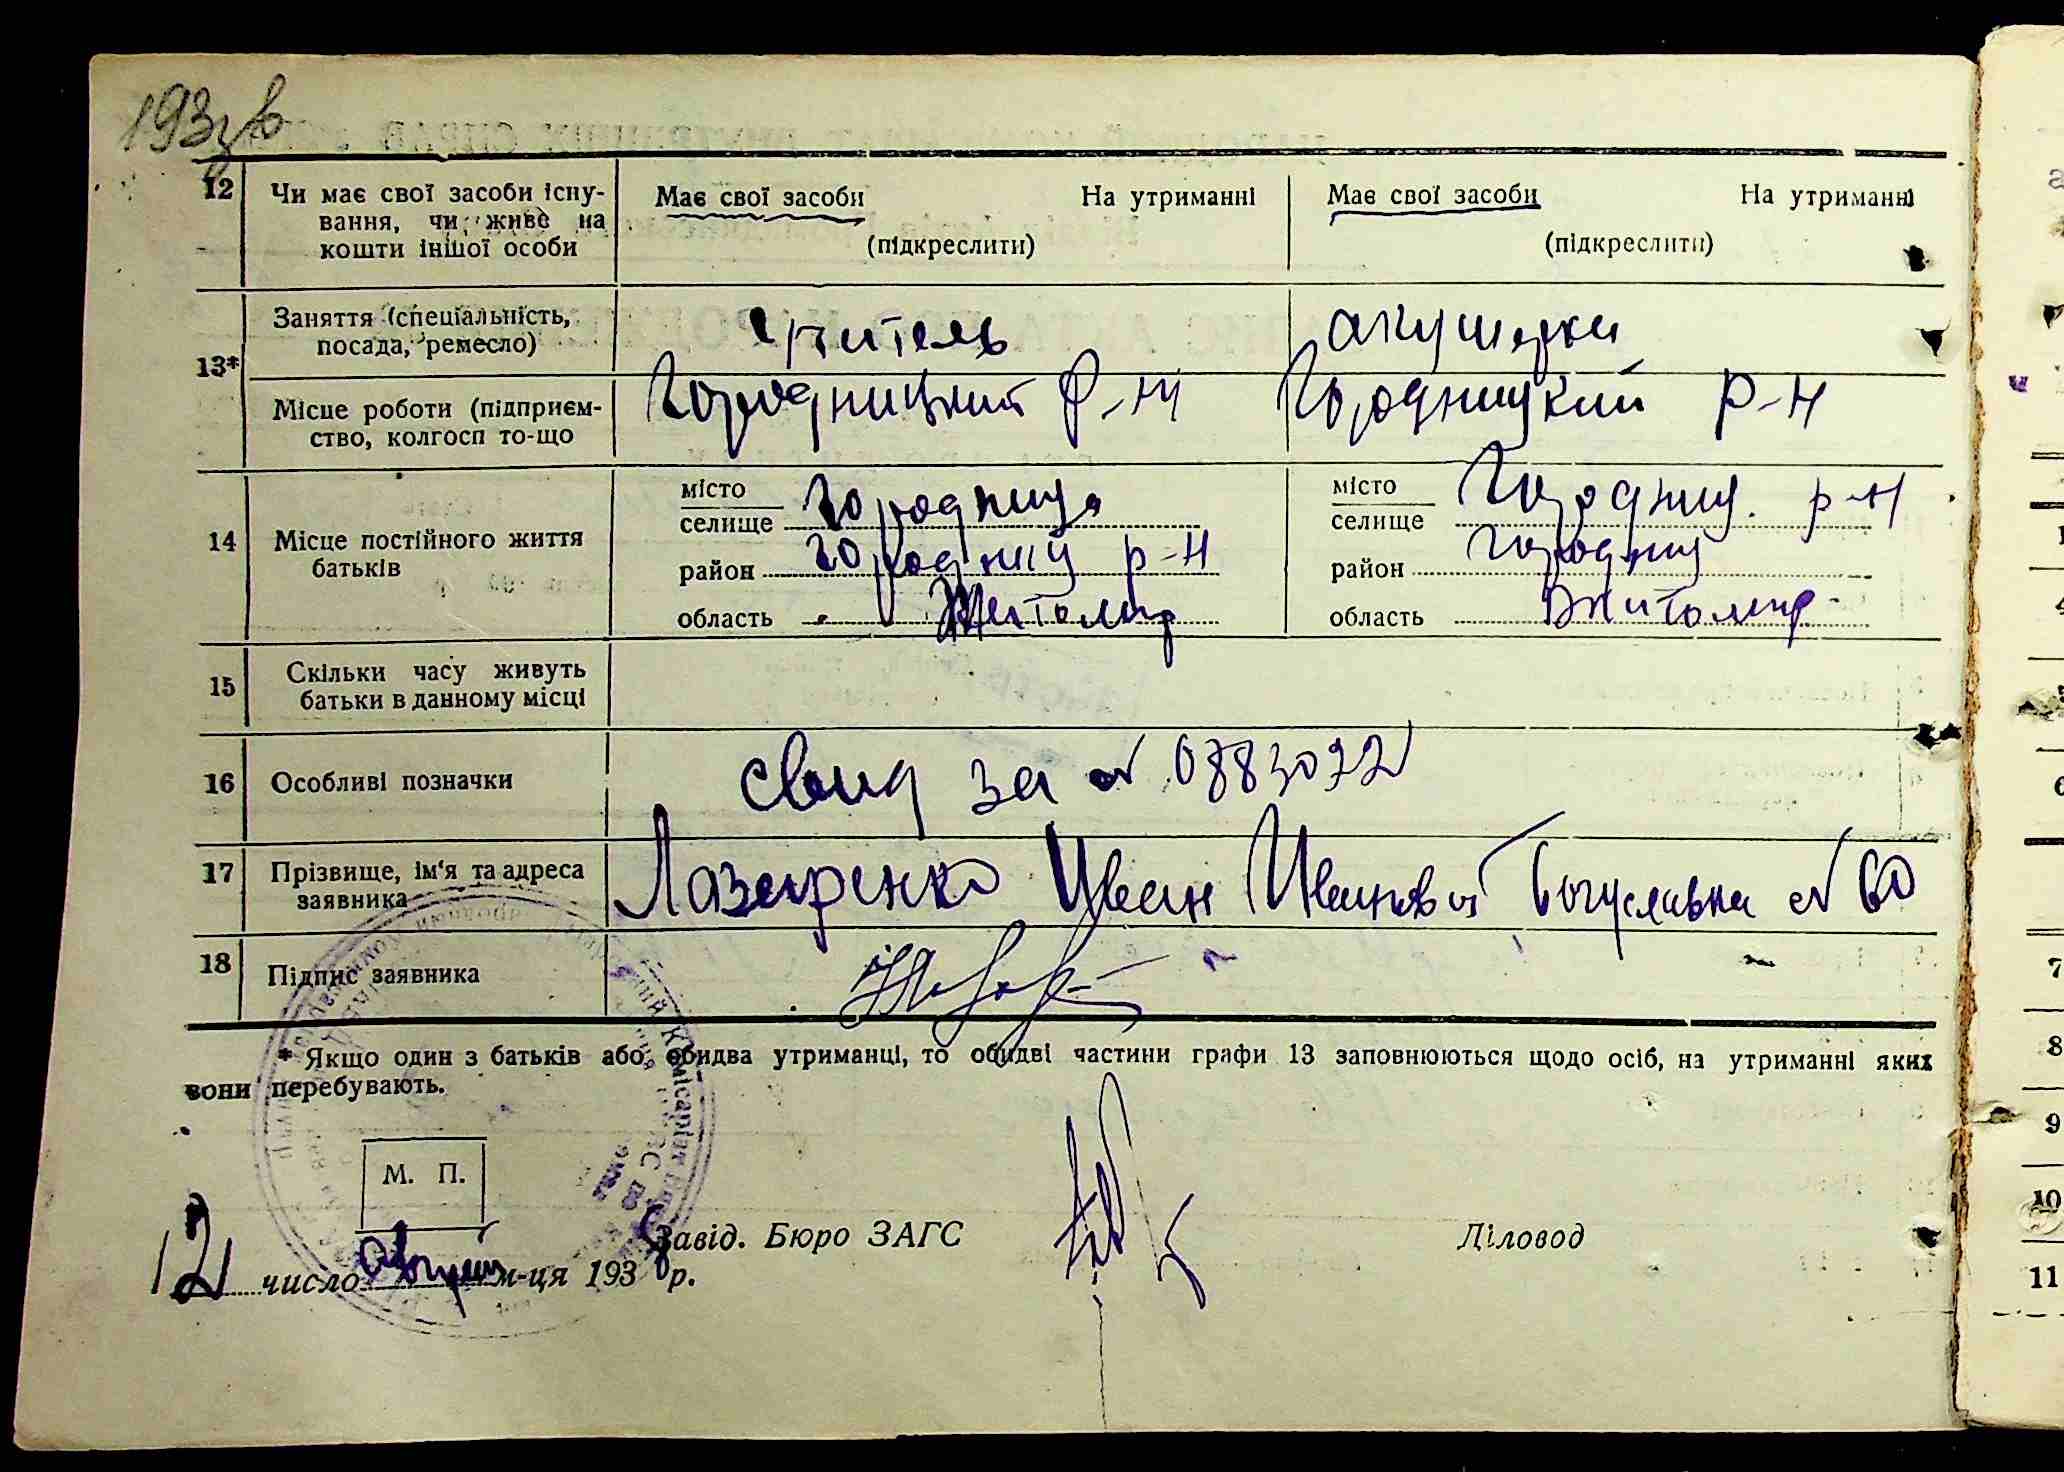 193 зв
12 Чи має свої засоби існу- Має свої засоби На утриманні Має свої засоби На утриманні
вання, чи живе на
кошти іншої особи (підкреслити) (підкреслити)
13* Заняття (спеціальність, учитель акушерка
посада, ремесло)
Місце роботи (підприєм- Городницкий р-н Городницкий р-н
ство, колгосп то-що
14 Місце постійного життя батьків
місто селище Городница місто селище Городниц. р-н
район Городниц р-н район Городниц
область Житомир область Житомир
15 Скільки часу живуть
батьки в данному місці
16 Особливі позначки свид за № 0883072
17 Прізвище, ім'я та адреса Лазаренко Иван Иванович Богуславка № 60
заявника
18 Підпис заявника
* Якщо один з батьків або обидва утриманці, то обидві частини графи 13 заповнюються щодо осіб, на утриманні яких
вони перебувають.
М. П.
Завід. Бюро ЗАГС Діловод
12 число август м-ця 1938 р.
7
8
9
10
11